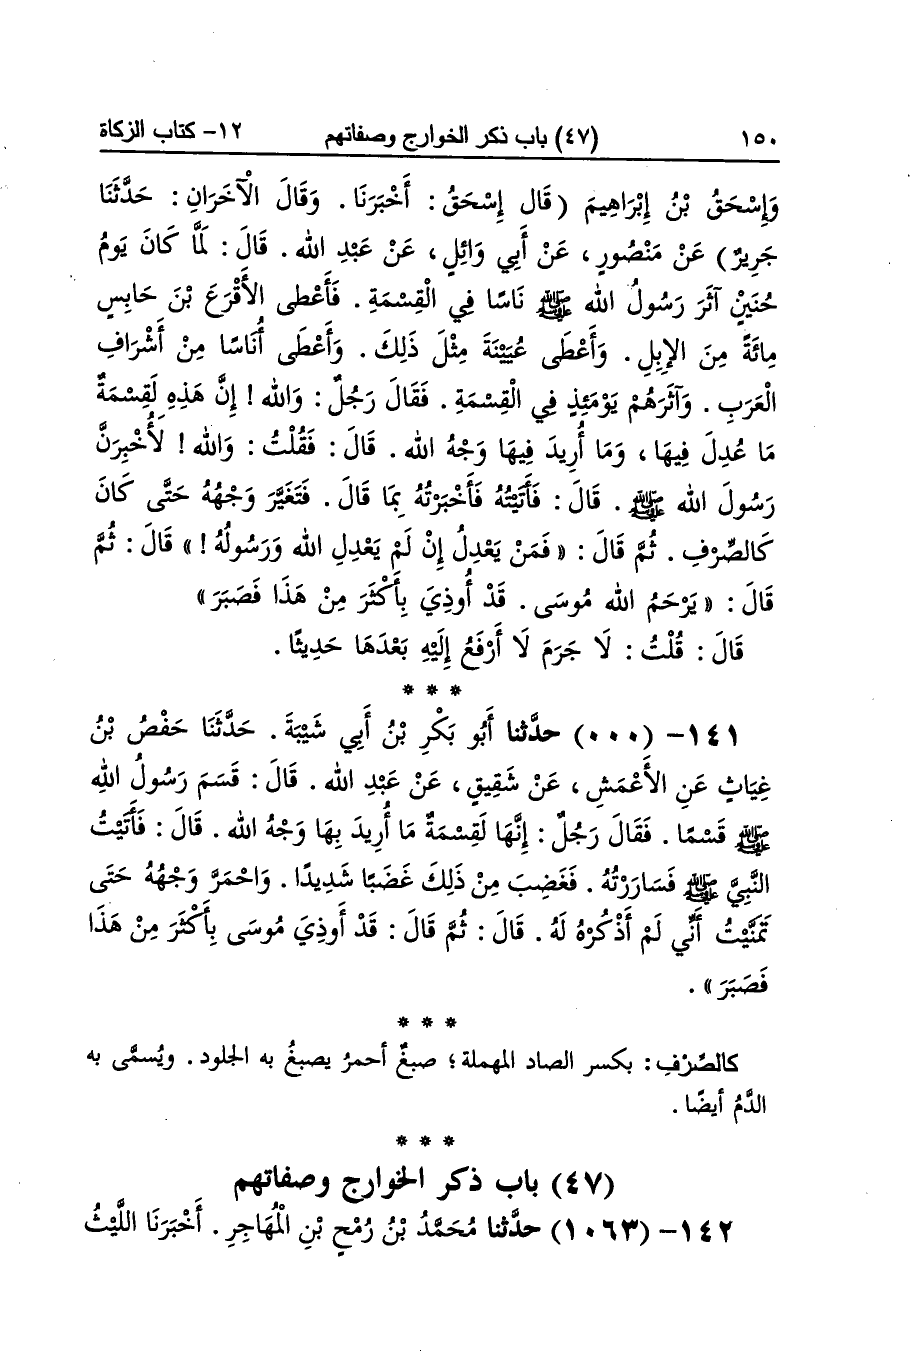 ١٥٠ (٤٧) باب ذكر الخوارج وصفاتهم ١٢- كتاب الزكاة
وَإِسْحَقُ بْنُ إِبْرَاهِيمَ (قَالَ إِسْحَقُ : أَخْبَرَنَا . وَقَالَ الْآخَرَانِ : حَدَّثَنَا
جَرِيرٌ) عَنْ مَنْصُورٍ ، عَنْ أَبِي وَائِلٍ ، عَنْ عَبْدِ اللهِ . قَالَ : لَمَّا كَانَ يَوْمُ
حُنَيْنٍ آثَرَ رَسُولُ اللهِ ﷺ نَاسًا فِي الْقِسْمَةِ . فَأَعْطَى الأَقْرَعَ بْنَ حَابِسٍ
مِائَةً مِنَ الإِبِلِ . وَأَعْطَى عُيَيْنَةَ مِثْلَ ذَلِكَ . وَأَعْطَى أُنَاسًا مِنْ أَشْرَافِ
الْعَرَبِ . وَآثَرَهُمْ يَوْمَئِذٍ فِي الْقِسْمَةِ . فَقَالَ رَجُلٌ : وَاللهِ ! إِنَّ هَذِهِ لَقِسْمَةٌ
مَا عُدِلَ فِيهَا ، وَمَا أُرِيدَ فِيهَا وَجْهُ اللهِ . قَالَ : فَقُلْتُ : وَاللهِ ! لَأُخْبِرَنَّ
رَسُولَ اللهِ ﷺ . قَالَ : فَأَتَيْتُهُ فَأَخْبَرْتُهُ بِمَا قَالَ . فَتَغَيَّرَ وَجْهُهُ حَتَّى كَانَ
كَالصِّرْفِ . ثُمَّ قَالَ : «فَمَنْ يَعْدِلُ إِنْ لَمْ يَعْدِلِ اللهُ وَرَسُولُهُ !» قَالَ : ثُمَّ
قَالَ : «يَرْحَمُ اللهُ مُوسَى . قَدْ أُوذِيَ بِأَكْثَرَ مِنْ هَذَا فَصَبَرَ»
قَالَ : قُلْتُ : لَا جَرَمَ لَا أَرْفَعُ إِلَيْهِ بَعْدَهَا حَدِيثًا .
* * *
١٤١- (٠٠٠) حدَّثنا أَبُو بَكْرِ بْنُ أَبِي شَيْبَةَ . حَدَّثَنَا حَفْصُ بْنُ
غِيَاثٍ عَنِ الأَعْمَشِ ، عَنْ شَقِيقٍ ، عَنْ عَبْدِ اللهِ . قَالَ : قَسَمَ رَسُولُ اللهِ
ﷺ قَسْمًا . فَقَالَ رَجُلٌ : إِنَّهَا لَقِسْمَةٌ مَا أُرِيدَ بِهَا وَجْهُ اللهِ . قَالَ : فَأَتَيْتُ
النَّبِيَّ ﷺ فَسَارَرْتُهُ . فَغَضِبَ مِنْ ذَلِكَ غَضَبًا شَدِيدًا . وَاحْمَرَّ وَجْهُهُ حَتَّى
تَمَنَّيْتُ أَنِّي لَمْ أَذْكُرْهُ لَهُ . قَالَ : ثُمَّ قَالَ : قَدْ أُوذِيَ مُوسَى بِأَكْثَرَ مِنْ هَذَا
فَصَبَرَ» .
* * *
كالصِّرْفِ : بكسر الصاد المهملة ؛ صبغٌ أحمرُ يصبغُ به الجلود . ويُسمَّى به
الدَّمُ أيضًا .
* * *
(٤٧) باب ذكر الخوارج وصفاتهم
١٤٢- (١٠٦٣) حدَّثنا مُحَمَّدُ بْنُ رُمْحِ بْنِ الْمُهَاجِرِ . أَخْبَرَنَا اللَّيْثُ